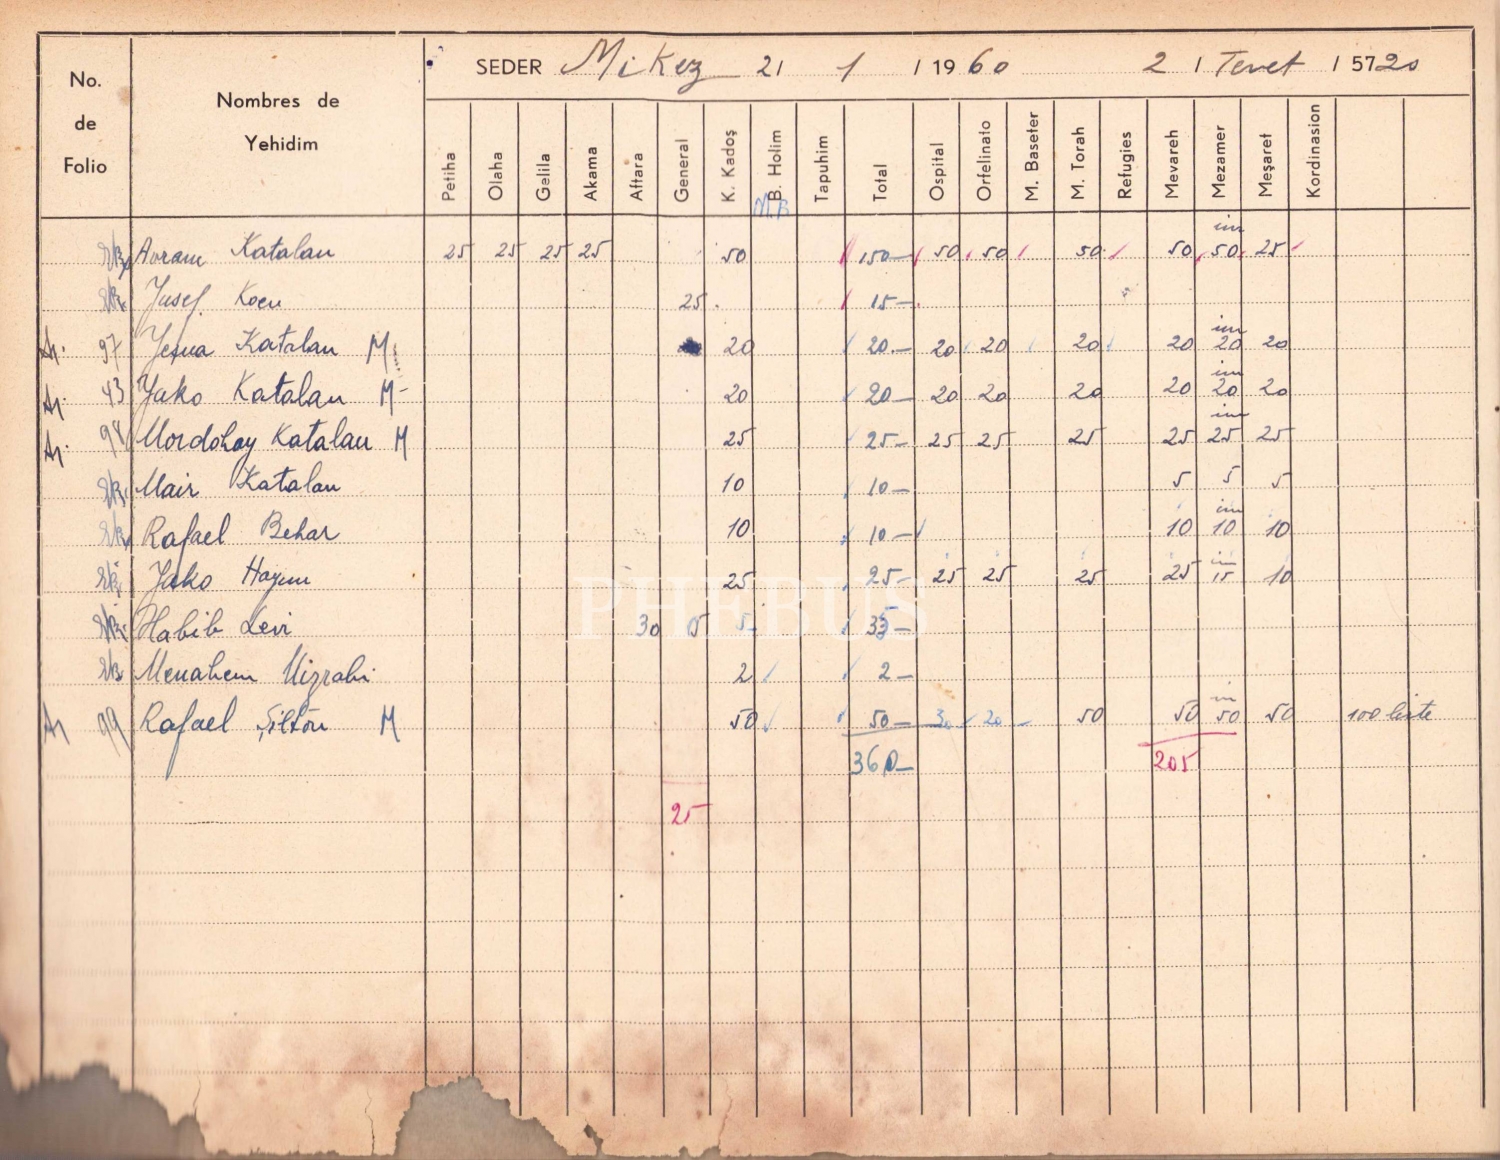 SEDER Mikez 2 / 1 / 1960 2 / Tevet / 5720
No. de Folio
Nombres de Yehidim
Petiha Olaha Gelila Akama Aftara General K. Kadoş B. Holim Tapuhim Total Ospital Orfelinato M. Baseter M. Torah Refugies Mevareh Mezamer Meşaret Kordinasion
M.B
Avram Katalan 25 25 25 25 50 150- 50 50 50 50 50 25
Jusef Koen 25 15-
97 Jeşua Katalan M 20 20- 20 20 20 20 20 20
43 Jako Katalan M- 20 20- 20 20 20 20 20 20
98 Mordohay Katalan M 25 25- 25 25 25 25 25 25
Mair Katalan 10 10- 5 5 5
Rafael Behar 10 10- 10 10 10
Jako Hayim 25 25- 25 25 25 25 15 10
PHEBUS
Habib Levi 30 15 5-
Menahem Mizrahi 2 2-
99 Rafael Şilton M 50 50- 30 20- 50 50 50 50 100 liste
360- 205
25